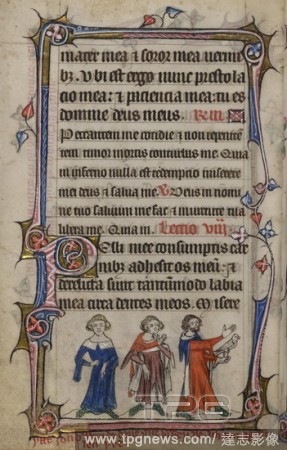 mater mea & soror mea uermi
bz. Ubi est ergo nunc presto la
cio mea: & paciencia mea: tu es
domine deus meus.
Peccantem me cotidie & non
tem: timor mortis conturbat me. Quia
in inferno nulla est redemptio miserere
mei deus & salua me. Deus in nomi
ne tuo saluum me fac & in uirtute tua
libera me. Quia in. Lectio viij
Pelli mee consumptis car
nibz adhesit os meū: &
derelicta sunt tantūmodo labia
mea circa dentes meos. Misere
TPG
www.tpgnews.com/ 達志影像